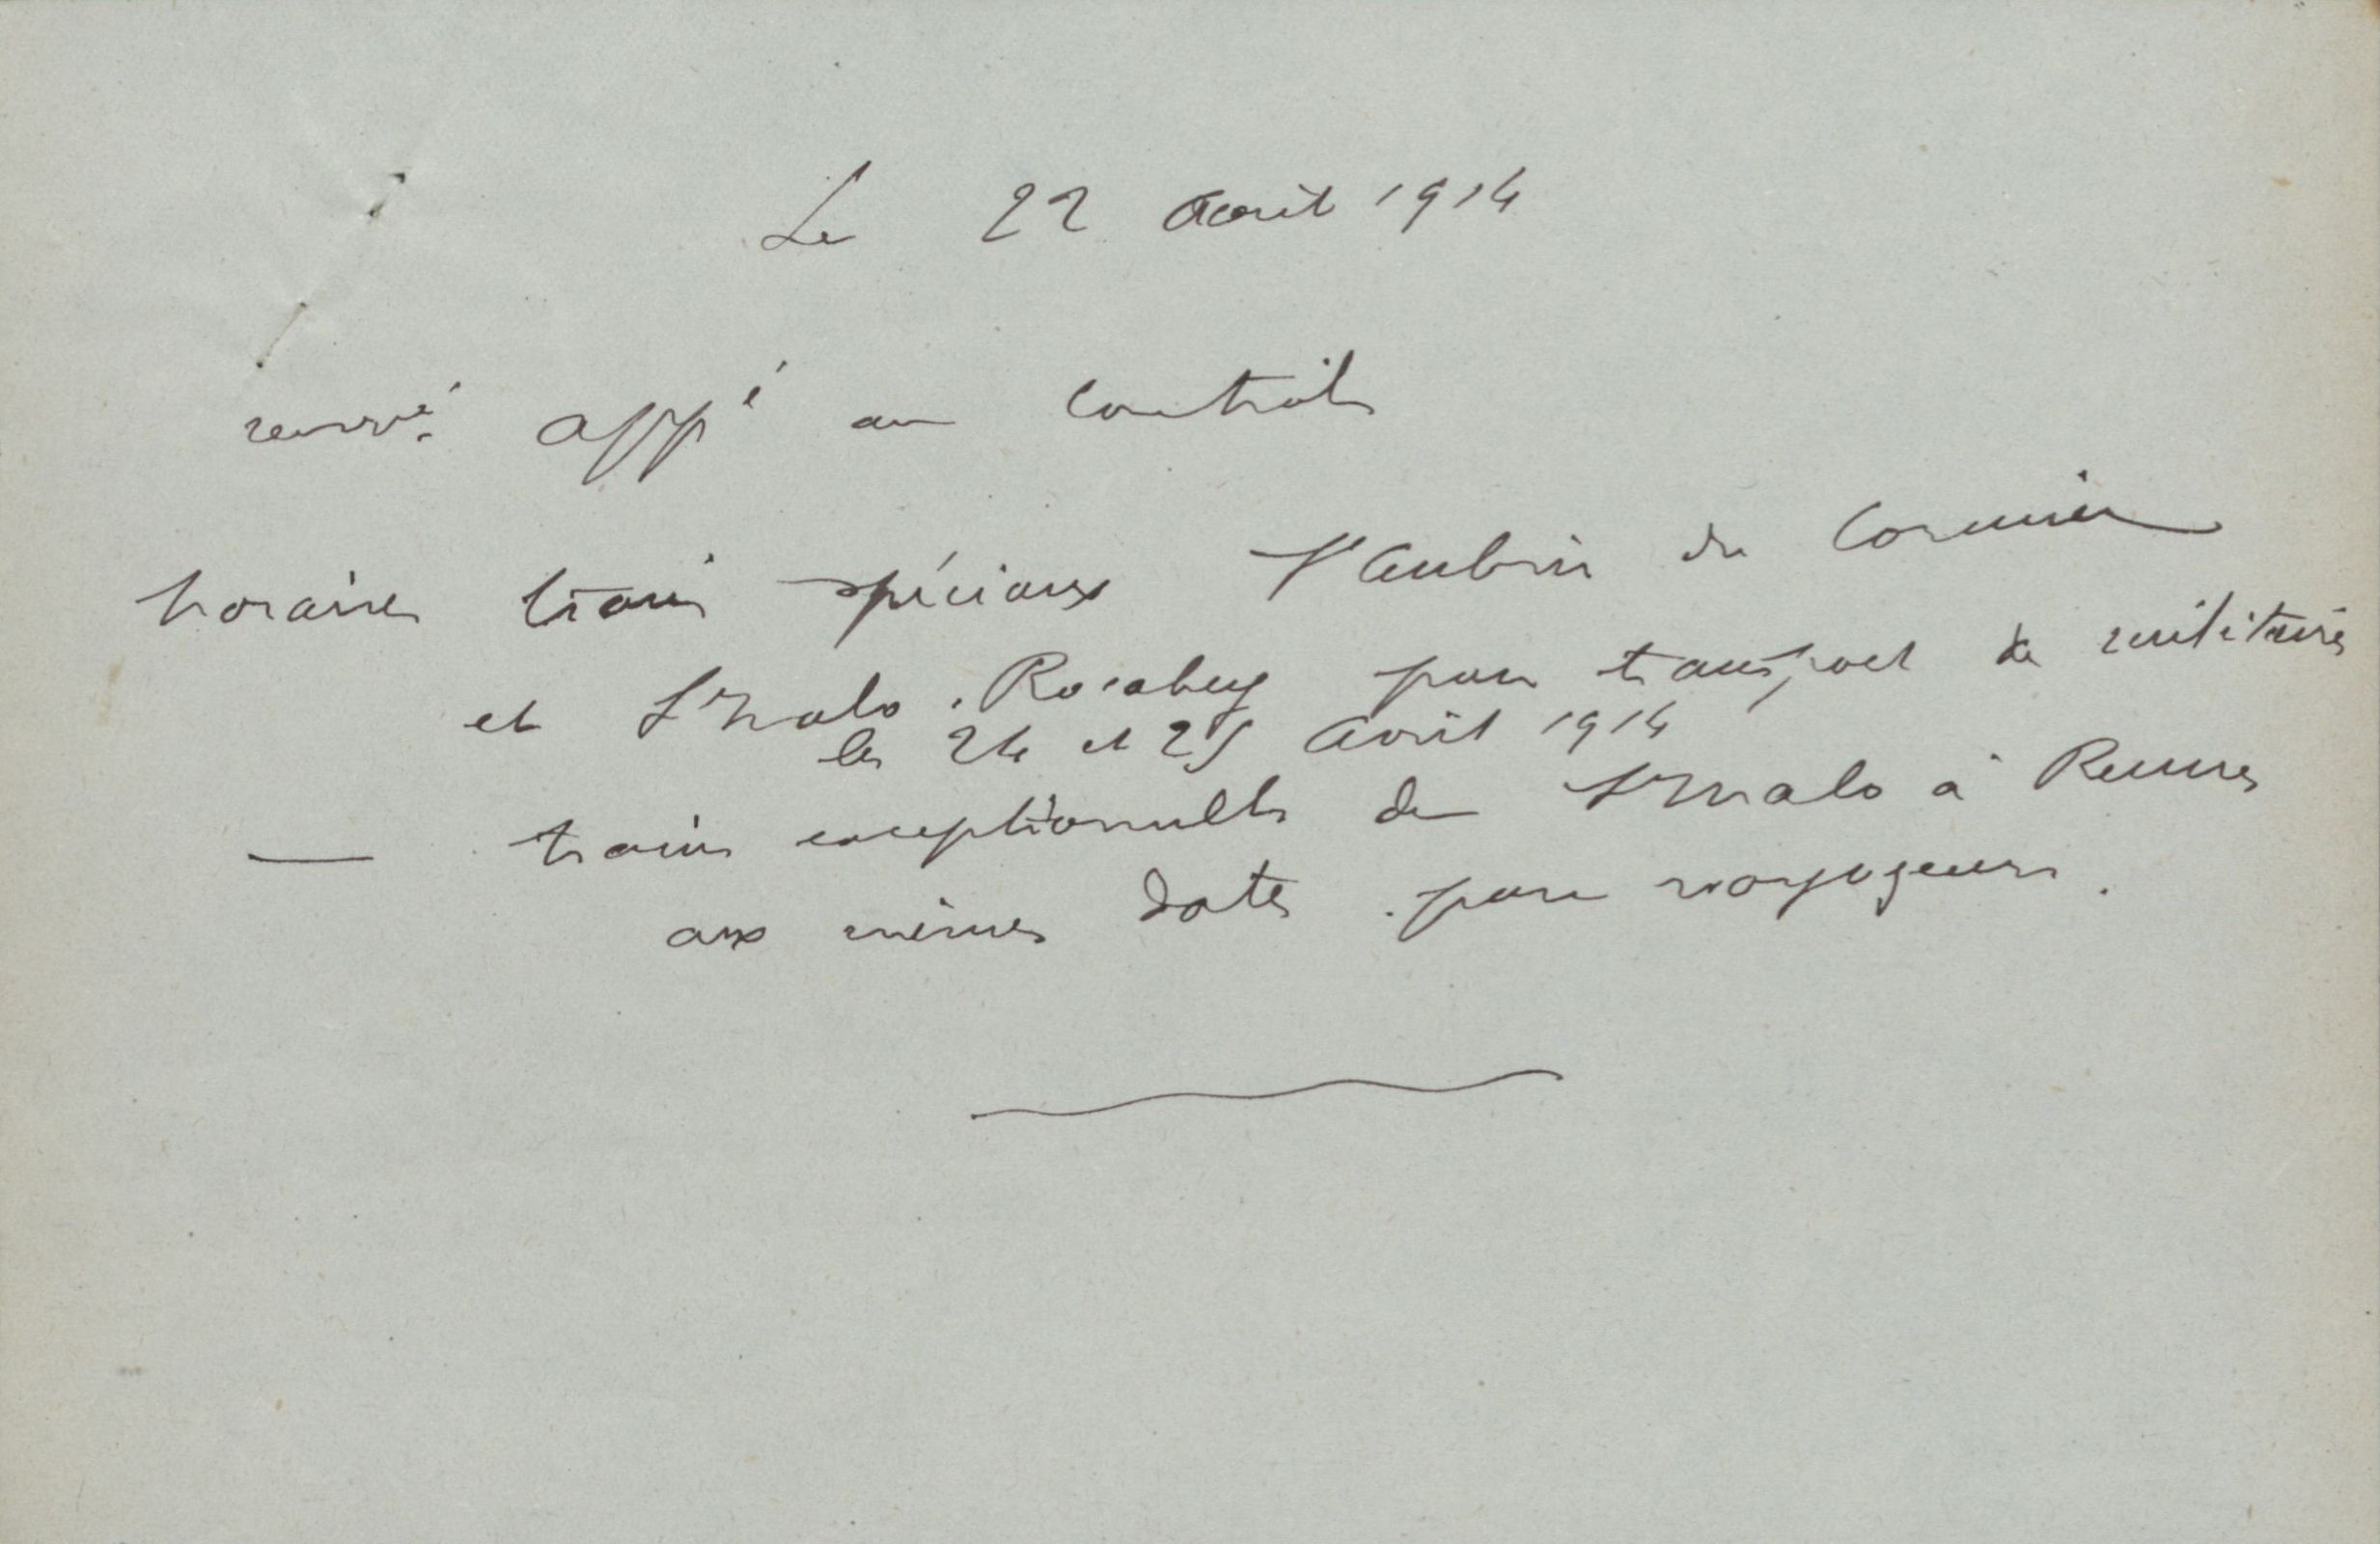 Le 22 Avril 1914
renvoi appé au Contrôle
horaires trains spéciaux St Aubin du Cormier
et St Malo. Rocabey pour transport de militaires
les 24 et 25 Avril 1914
— trains exceptionnels de St Malo à Rennes
aux mêmes dates pour voyageurs.